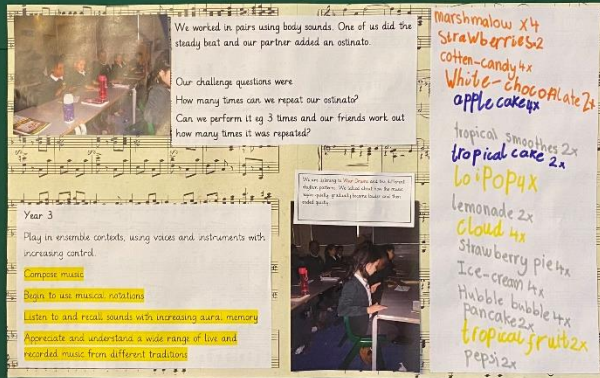 We worked in pairs using body sounds. One of us did the
steady beat and our partner added an ostinato.
Our challenge questions were
How many times can we repeat our ostinato?
Can we perform it eg 3 times and our friends work out
how many times it was repeated?
We are listening to War Drums and the different
rhythm patterns. We talked about how the music
began quietly, gradually became louder and then
ended quietly.
Year 3
Play in ensemble contexts, using voices and instruments with
increasing control.
Compose music
Begin to use musical notations
Listen to and recall sounds with increasing aural memory
Appreciate and understand a wide range of live and
recorded music from different traditions
marshmalow x4
strawberries2
cotten-candy 4x
White-chocolate 2x
apple cake4x
tropical smoothes 2x
tropical cake 2x
LoiPoP4x
lemonade 2x
Cloud 4x
strawberry pie 4x
Ice-cream 4x
Hubble bubble 4x
pancake 2x
tropical fruit 2x
pepsi 2x